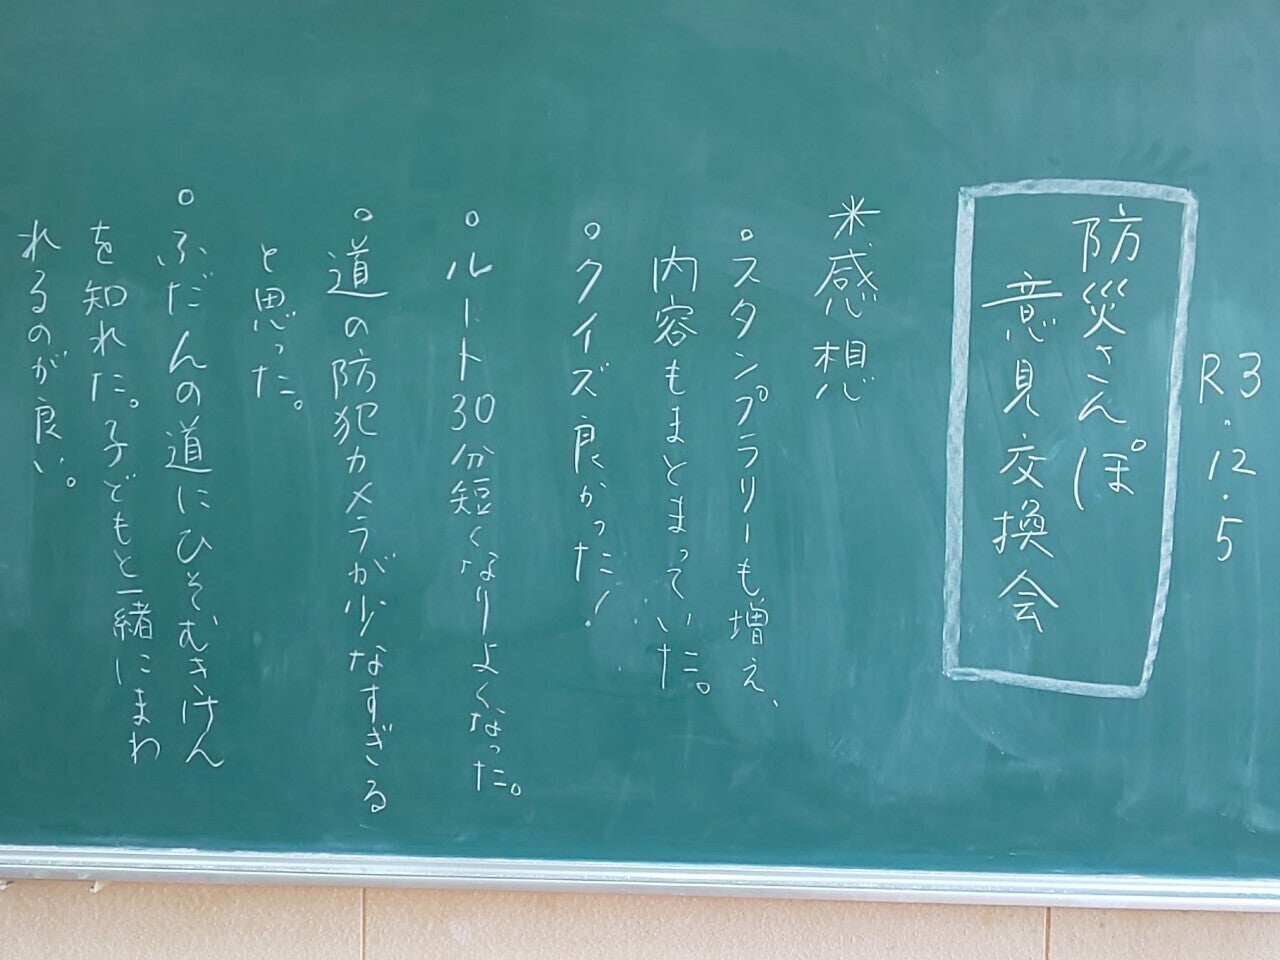 R3.12.5
防災さんぽ
意見交換会
※感想
○スタンプラリーも増え、
内容もまとまっていた。
○クイズ良かった!
○ルート30分短くなりよくなった。
○道の防犯カメラが少なすぎる
と思った。
○ふだんの道にひそむきけん
を知れた。子どもと一緒にまわ
れるのが良い。